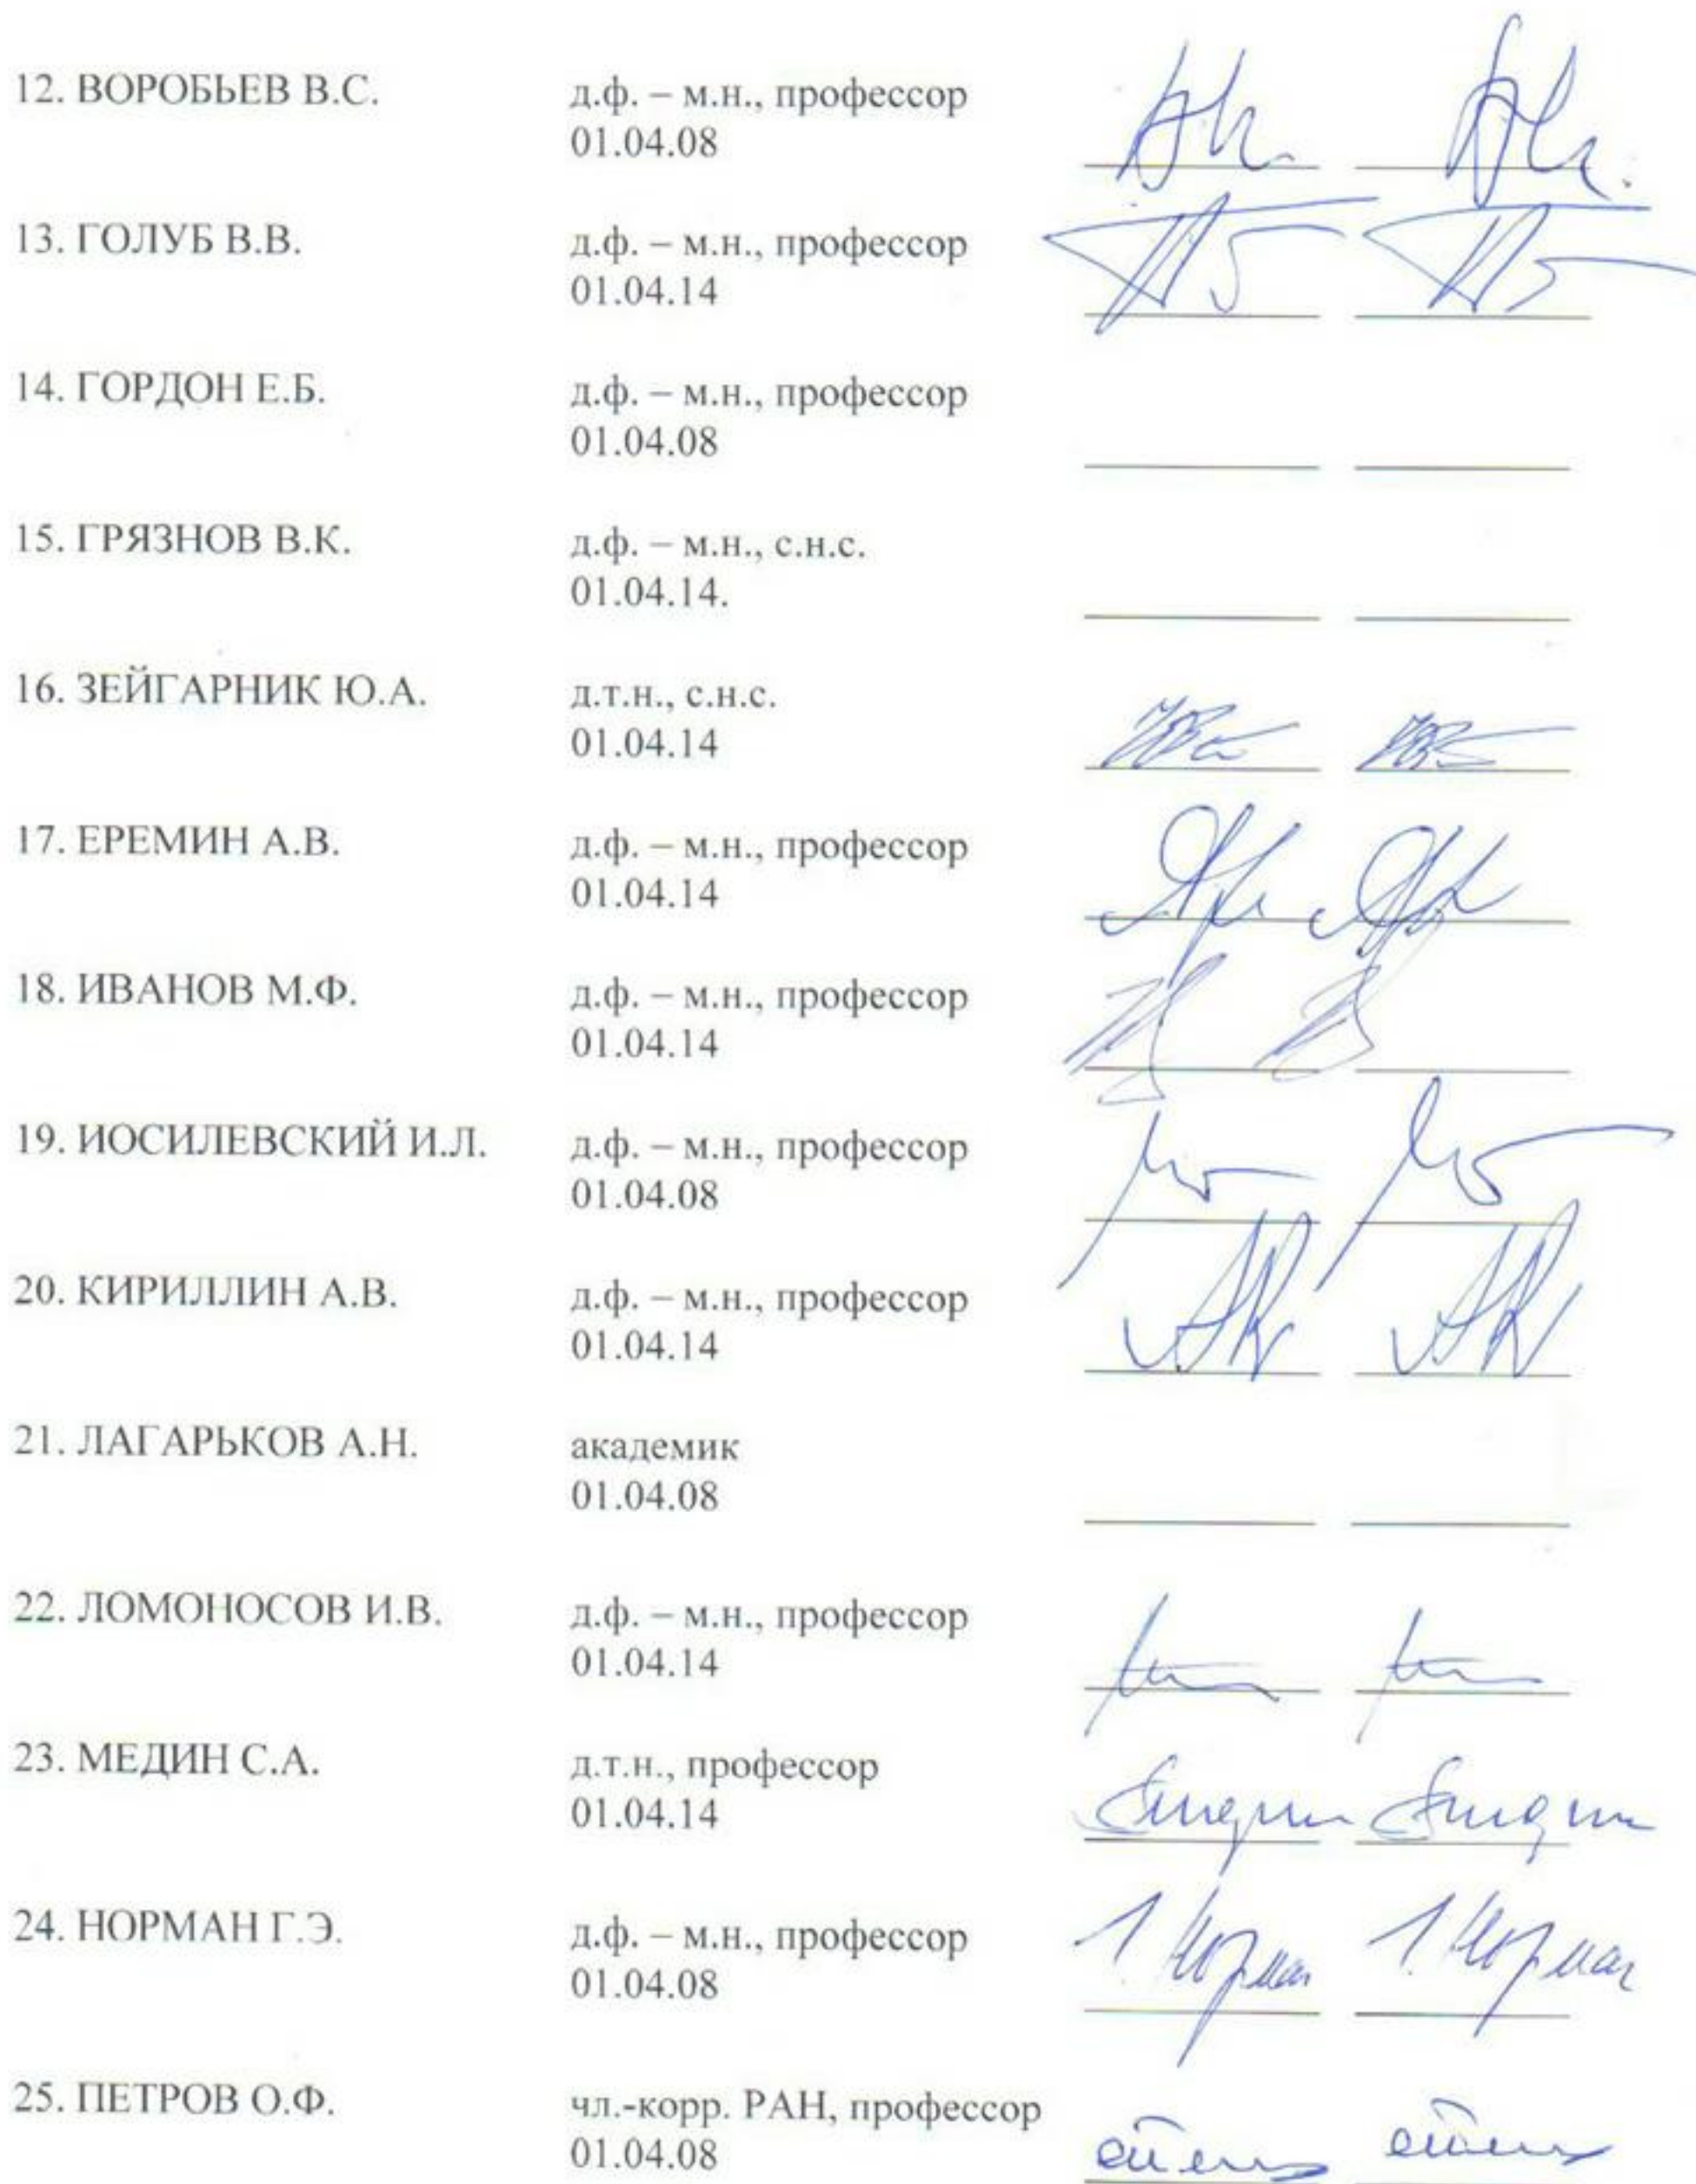 12. ВОРОБЬЕВ В.С. д.ф. – м.н., профессор
01.04.08
13. ГОЛУБ В.В. д.ф. – м.н., профессор
01.04.14
14. ГОРДОН Е.Б. д.ф. – м.н., профессор
01.04.08
15. ГРЯЗНОВ В.К. д.ф. – м.н., с.н.с.
01.04.14.
16. ЗЕЙГАРНИК Ю.А. д.т.н., с.н.с.
01.04.14
17. ЕРЕМИН А.В. д.ф. – м.н., профессор
01.04.14
18. ИВАНОВ М.Ф. д.ф. – м.н., профессор
01.04.14
19. ИОСИЛЕВСКИЙ И.Л. д.ф. – м.н., профессор
01.04.08
20. КИРИЛЛИН А.В. д.ф. – м.н., профессор
01.04.14
21. ЛАГАРЬКОВ А.Н. академик
01.04.08
22. ЛОМОНОСОВ И.В. д.ф. – м.н., профессор
01.04.14
23. МЕДИН С.А. д.т.н., профессор
01.04.14
24. НОРМАН Г.Э. д.ф. – м.н., профессор
01.04.08
25. ПЕТРОВ О.Ф. чл.-корр. РАН, профессор
01.04.08